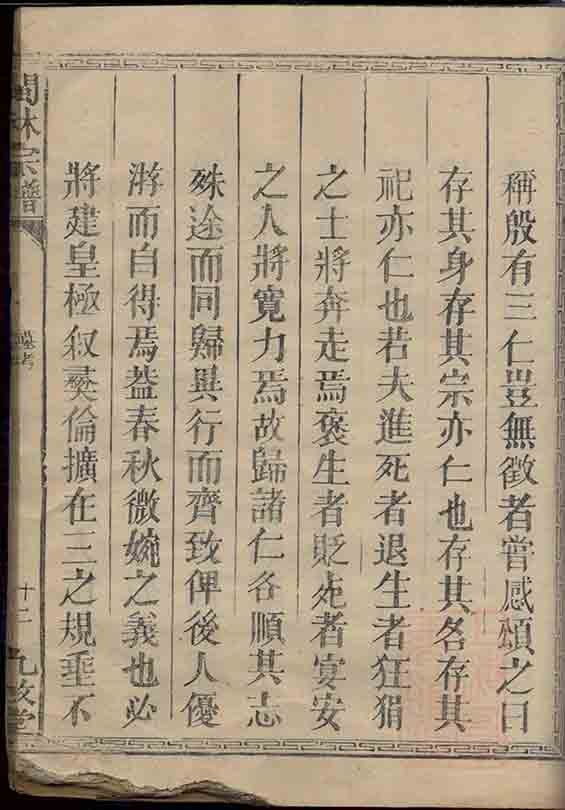 稱殷有三仁豈無徵者嘗感頌之曰
存其身存其宗亦仁也存其各存其
祀亦仁也若夫進死者退生者狂狷
之士將奔走焉褒生者貶死者宴安
之人將寛力焉故歸諸仁各順其志
殊途而同歸異行而齊致俾後人優
游而自得焉葢春秋微婉之義也必
將建皇極叙彞倫擴在三之規垂不
林宗譜
墓考
十二
九牧堂